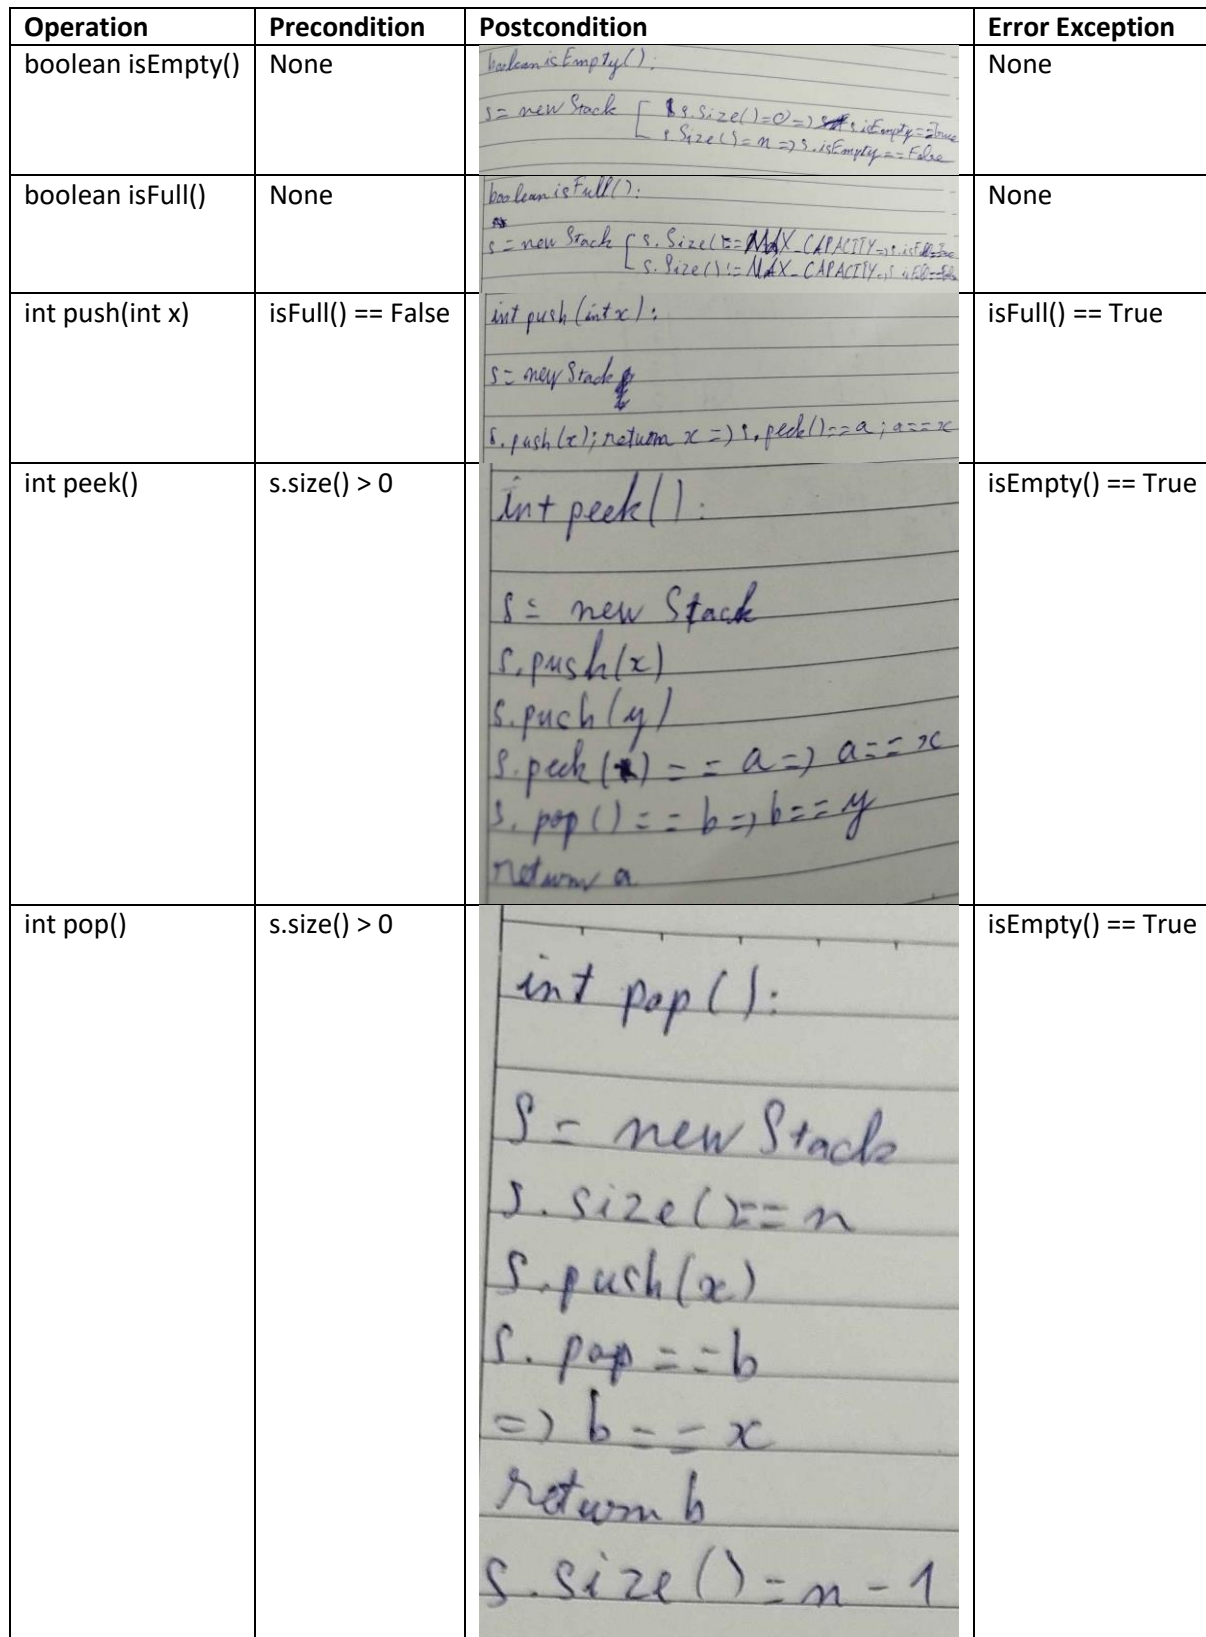 Operation Precondition Postcondition Error Exception
boolean isEmpty() None None
boolean isEmpty():
s = new Stack s.size()=0 => s.isEmpty==True
s.size()=n => s.isEmpty==False
boolean isFull() None None
boolean isFull():
s = new Stack s.size()==MAX_CAPACITY=>s.isFull==True
s.size()!=MAX_CAPACITY=>s.isFull==False
int push(int x) isFull() == False isFull() == True
int push(int x):
s = new Stack
s.push(x); return x => s.peek()==a; a==x
int peek() s.size() > 0 isEmpty() == True
int peek():
s = new Stack
s.push(x)
s.push(y)
s.peek() == a => a==x
s.pop() == b => b==y
return a
int pop() s.size() > 0 isEmpty() == True
int pop():
s = new Stack
s.size()==n
s.push(x)
s.pop==b
=> b==x
return b
s.size()=n-1